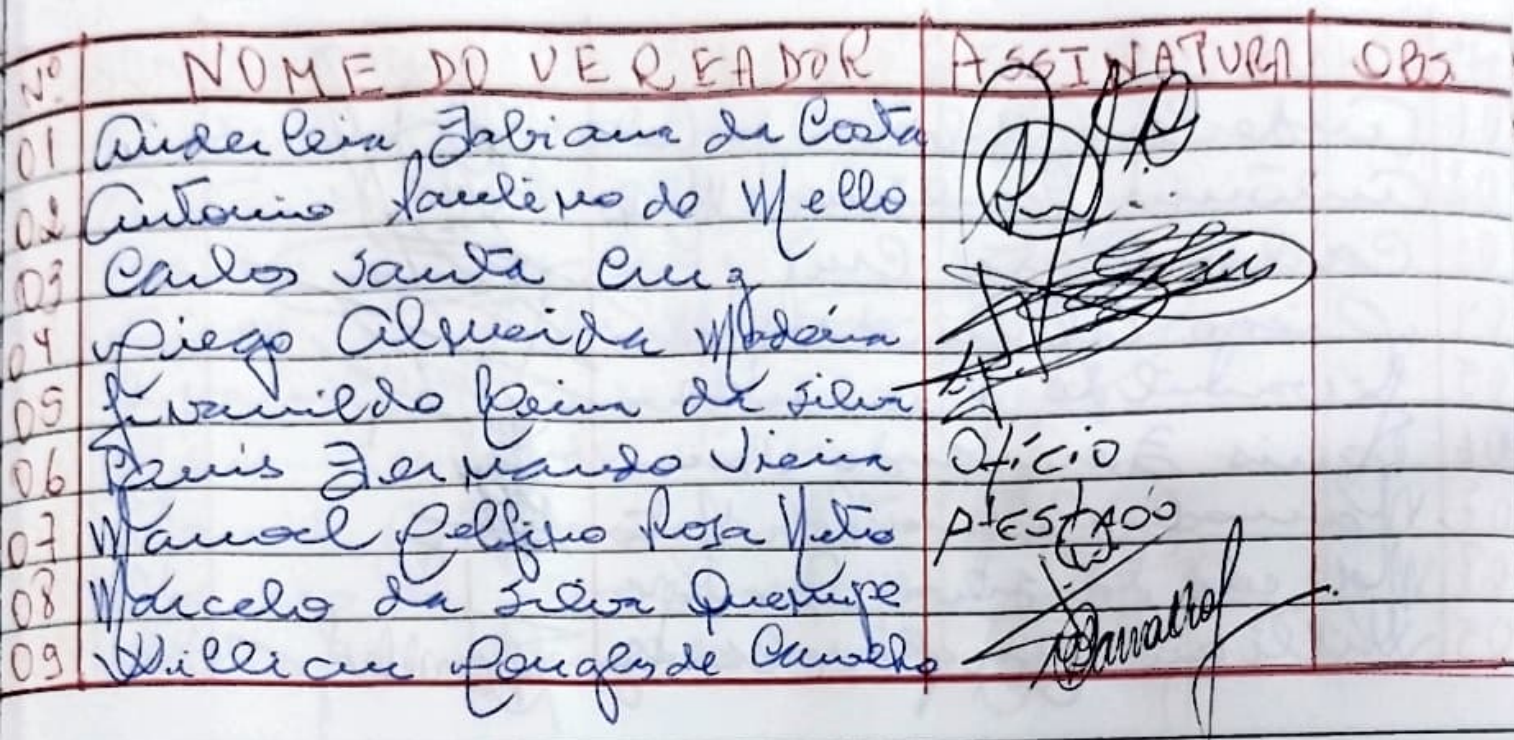 Nº NOME DO VEREADOR ASSINATURA OBS.
01 Anderleia Fabiana da Costa
02 Antonio Paulino de Mello
03 Carlos Santa Cruz
04 Diego Almeida Madeira
05 da Silva
06 Fernando Vieira Ofício
07 Manoel Delfino Rosa Neto
08 Marcelo da Silva
09 Willian Douglas de Carvalho Carvalho